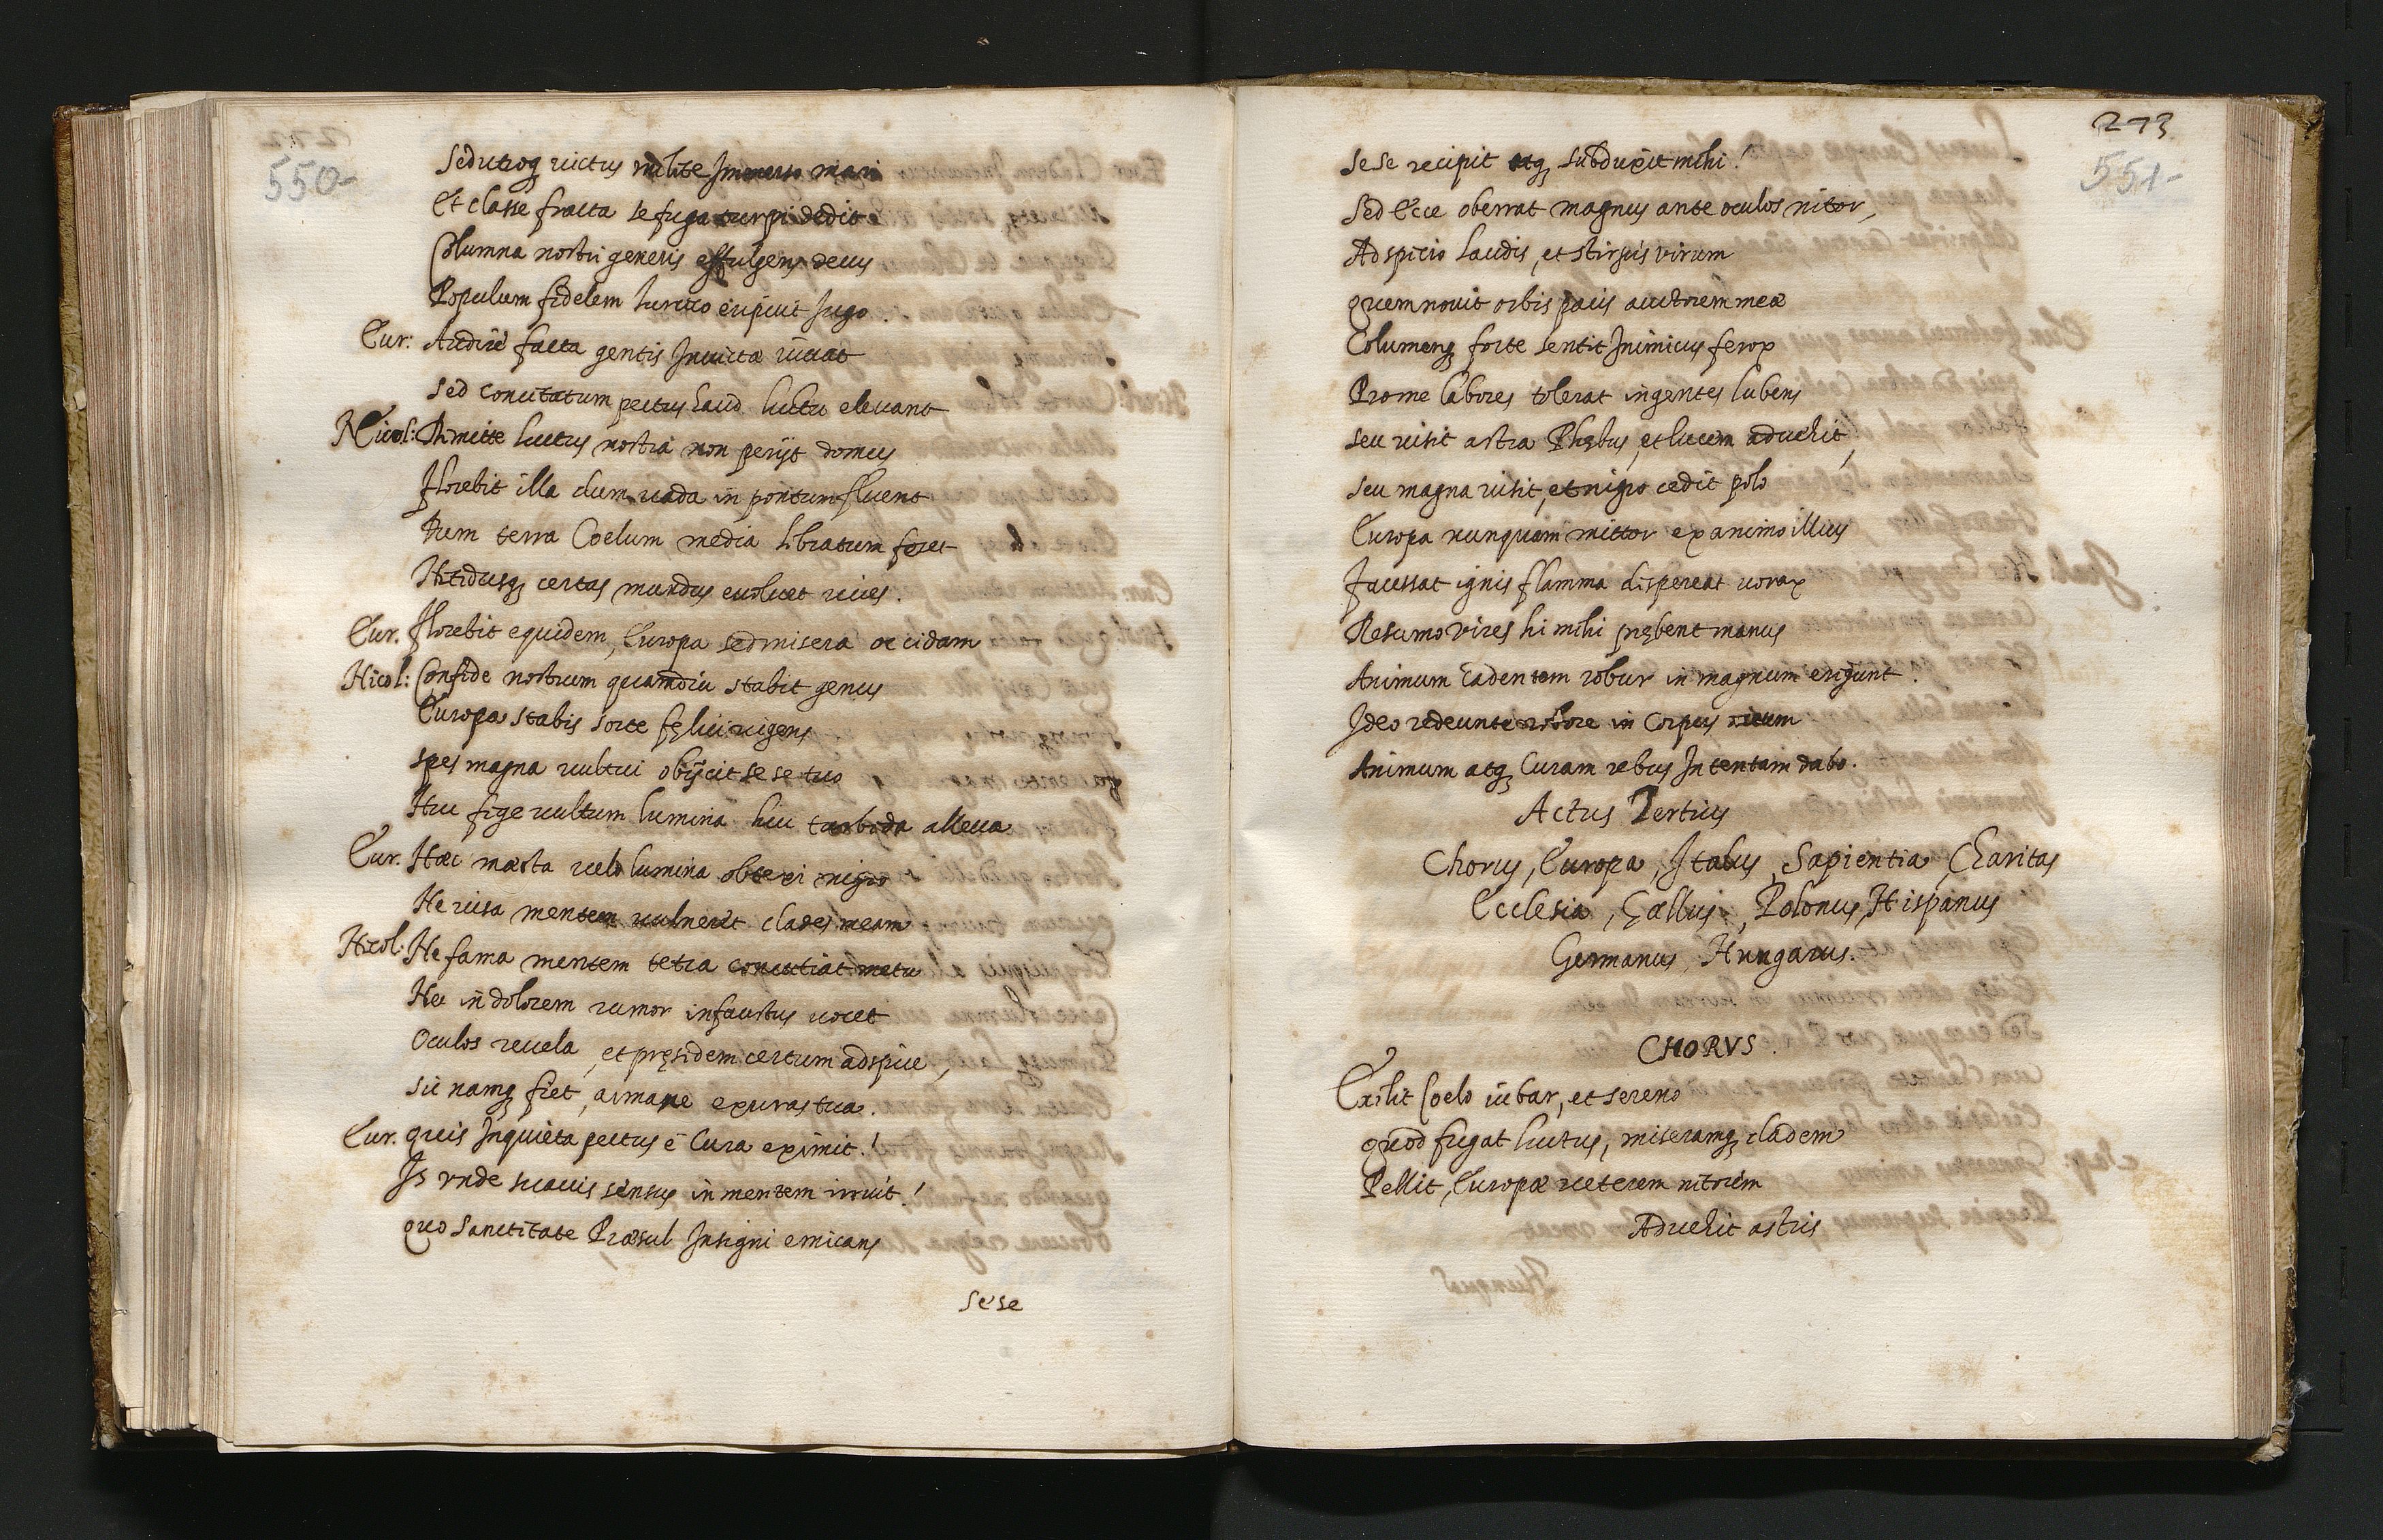 550-
sed utroq victus milite Immerso mari
Et classe fracta se fuga turpi dedit
Columna nostri generis effulgens decus
Populum fidelem turcico eripuit Jugo.
Eur: Audire facta gentis Invictæ iuuat
sed concitatum pectus haud luctu eleuant
Nicol: Remitte luctus nostra non perijt domus
Florebit illa dum vada in pontum fluent
Dum terra Coelum media libratum feret
Nitidusq certas mundus euoluet uices.
Eur. Florebit equidem, Europa sed misera occidam
Nicol: Confide nostrum quamdiu stabit genus
Europa stabis sorte felici uigens
spes magna uultui obijcit sese tuo
Huc fige uultum lumina huc turbida alleua
Eur. Hæc mæsta uelo lumina obtexi nigro
Ne uisa mentem vulneret clades meam
Nicol: Ne fama mentem tetra concutiat metu
Neu in dolorem rumor infaustus uocet
Oculos reuela, et pręsidem certum adspice,
sic namq fiet, animæ exuras tua.
Eur. quis Inquieta pectus è Cura eximit!
Is vnde suauis sensus in mentem irruit!
quo Sanctitate Præsul Insigni emicans
sese
273
551-
sese recipit atq subduxit mihi!
Sed Ecce oberrat magnus ante oculos nitor,
Adspicio laudis, et stirpis virum
quem nouit orbis pacis auctorem meæ
Columenq forte sentit Inimicus ferox
Pro me labores tolerat ingentes lubens
seu uisit astra Phębus, et lucem aduehit,
seu magna uisit, et nigro cedit polo
Europa nunquam mittor ex animo illius
Facessat ignis flamma dispereat uorax
Resumo vires hi mihi prębent manus
Animum Cadentem robur in magnum erigunt.
Ideo redeunte robore in Corpus meum
Animum atq Curam rebus Intentam dabo.
Actus Tertius
Chorus, Europa, Italus, Sapientia, Charitas
Ecclesia, Gallus, Polonus, Hispanus
Germanus, Hungarus.
CHORVS.
Exilit Coelo iubar, et sereno
quod fugat luctus, miseramq cladem
Pellit, Europæ ueterem nitorem
Aduehit astris